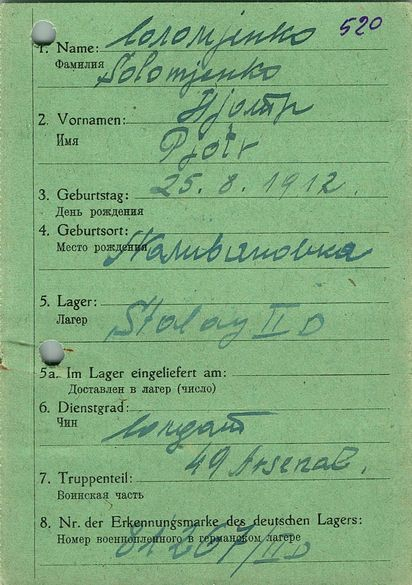 520
1. Name: Соломјенко
Фамилия Solomjenko
2. Vornamen: Пјотр
Имя Pjotr
3. Geburtstag: 25. 8. 1912.
День рождения
4. Geburtsort:
Место рождения
5. Lager: Stalag II D
Лагер
5a. Im Lager eingeliefert am:
Доставлен в лагер (число)
6. Dienstgrad: Солдат
Чин
49 Arsenal.
7. Truppenteil:
Воинская часть
8. Nr. der Erkennungsmarke des deutschen Lagers:
Номер военнопленного в германском лагере
81267/II D